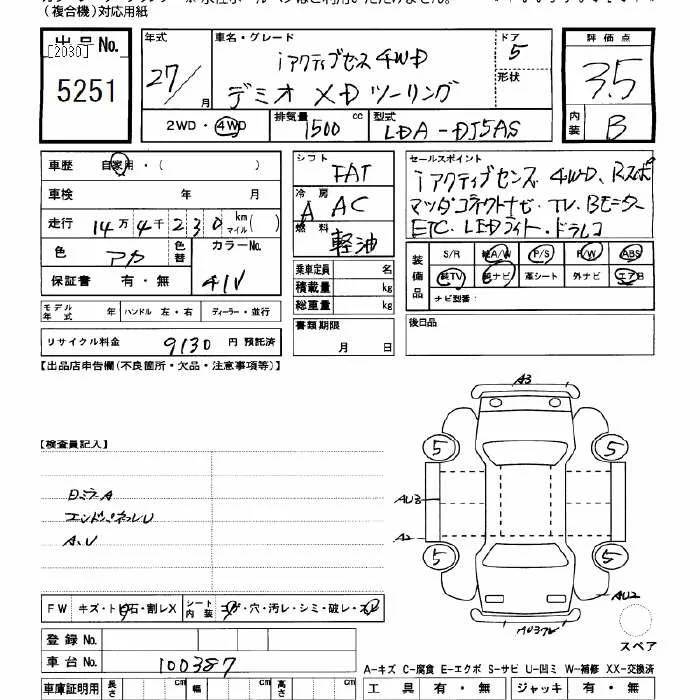 (複合機)対応用紙
出品No.
[2030]
5251
年式
27/
月
車名・グレード
iアクティブセンス 4WD
デミオ XD ツーリング
ドア
5
形状
2WD・4WD
排気量
1500 cc
型式
LDA-DJ5AS
評価点
3.5
内装
B
車歴 自家用・( )
車検 年 月
走行 14万4千230 km マイル ( )
色 アカ
色替
カラーNo.
41V
保証書 有・無
シフト FAT
冷房 A AC
燃料 軽油
乗車定員 名
積載量 kg
総重量 kg
書類期限
月 日
セールスポイント
iアクティブセンス 4WD、Rスポ
マツダコネクトナビ・TV、Bモニター
ETC、LEDライト・ドラレコ
装備品
S/R 純A/W P/S P/W ABS
純TV 純ナビ 革シート 外ナビ エアB
ナビ型番:
後日品
モデル年式 年 ハンドル 左・右 ディーラー・並行
リサイクル料金 9130 円 預託済
【出品店申告欄(不良箇所・欠品・注意事項等)】
【検査員記入】
エンドパネルU
A、U
A3
5 5
AU3
5 5
AU2
FW キズ・トビ石・割レX
シート内装 コゲ・穴・汚レ・シミ・破レ・スレ
スペア
登録No.
車台No. 100387
A-キズ C-腐食 E-エクボ S-サビ U-凹ミ W-補修 XX-交換済
車庫証明用 長さ cm 幅 cm 高さ cm
工具 有・無 ジャッキ 有・無